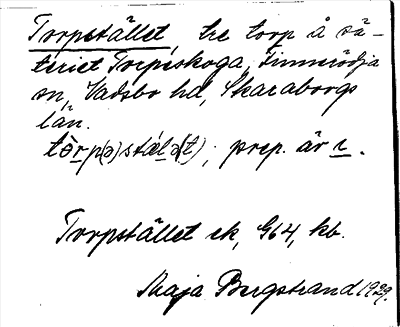 Torpstället, tre torp å sä-
teriet Torpeskoga, Finnerödja
sn, Vadsbo hd, Skaraborgs
län.
tò̱rp(ə)stæḻə(t); prep. är ı.
Torpstället ek, G64, kb.
Maja Bergstrand 1929.